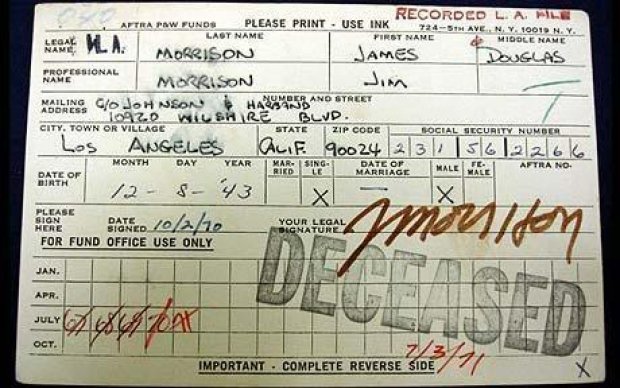 AFTRA P&W FUNDS PLEASE PRINT - USE INK RECORDED L.A. FILE
724-5TH AVE., N.Y. 10019 N.Y.
LAST NAME FIRST NAME MIDDLE NAME
LEGAL NAME MORRISON JAMES DOUGLAS
PROFESSIONAL NAME MORRISON JIM
MAILING ADDRESS NUMBER AND STREET
C/O JOHNSON & HARBAND
10920 WILSHIRE BLVD.
CITY, TOWN OR VILLAGE STATE ZIP CODE SOCIAL SECURITY NUMBER
LOS ANGELES CALIF. 90024 231 56 2266
DATE OF BIRTH MONTH DAY YEAR MARRIED SINGLE DATE OF MARRIAGE MALE FEMALE AFTRA NO.
12 - 8 - '43 X — X
PLEASE SIGN HERE DATE SIGNED 10/2/70 YOUR LEGAL SIGNATURE JMorrison
FOR FUND OFFICE USE ONLY
DECEASED
JAN.
APR.
JULY 67 68 69 70
OCT.
7/3/71
IMPORTANT - COMPLETE REVERSE SIDE X